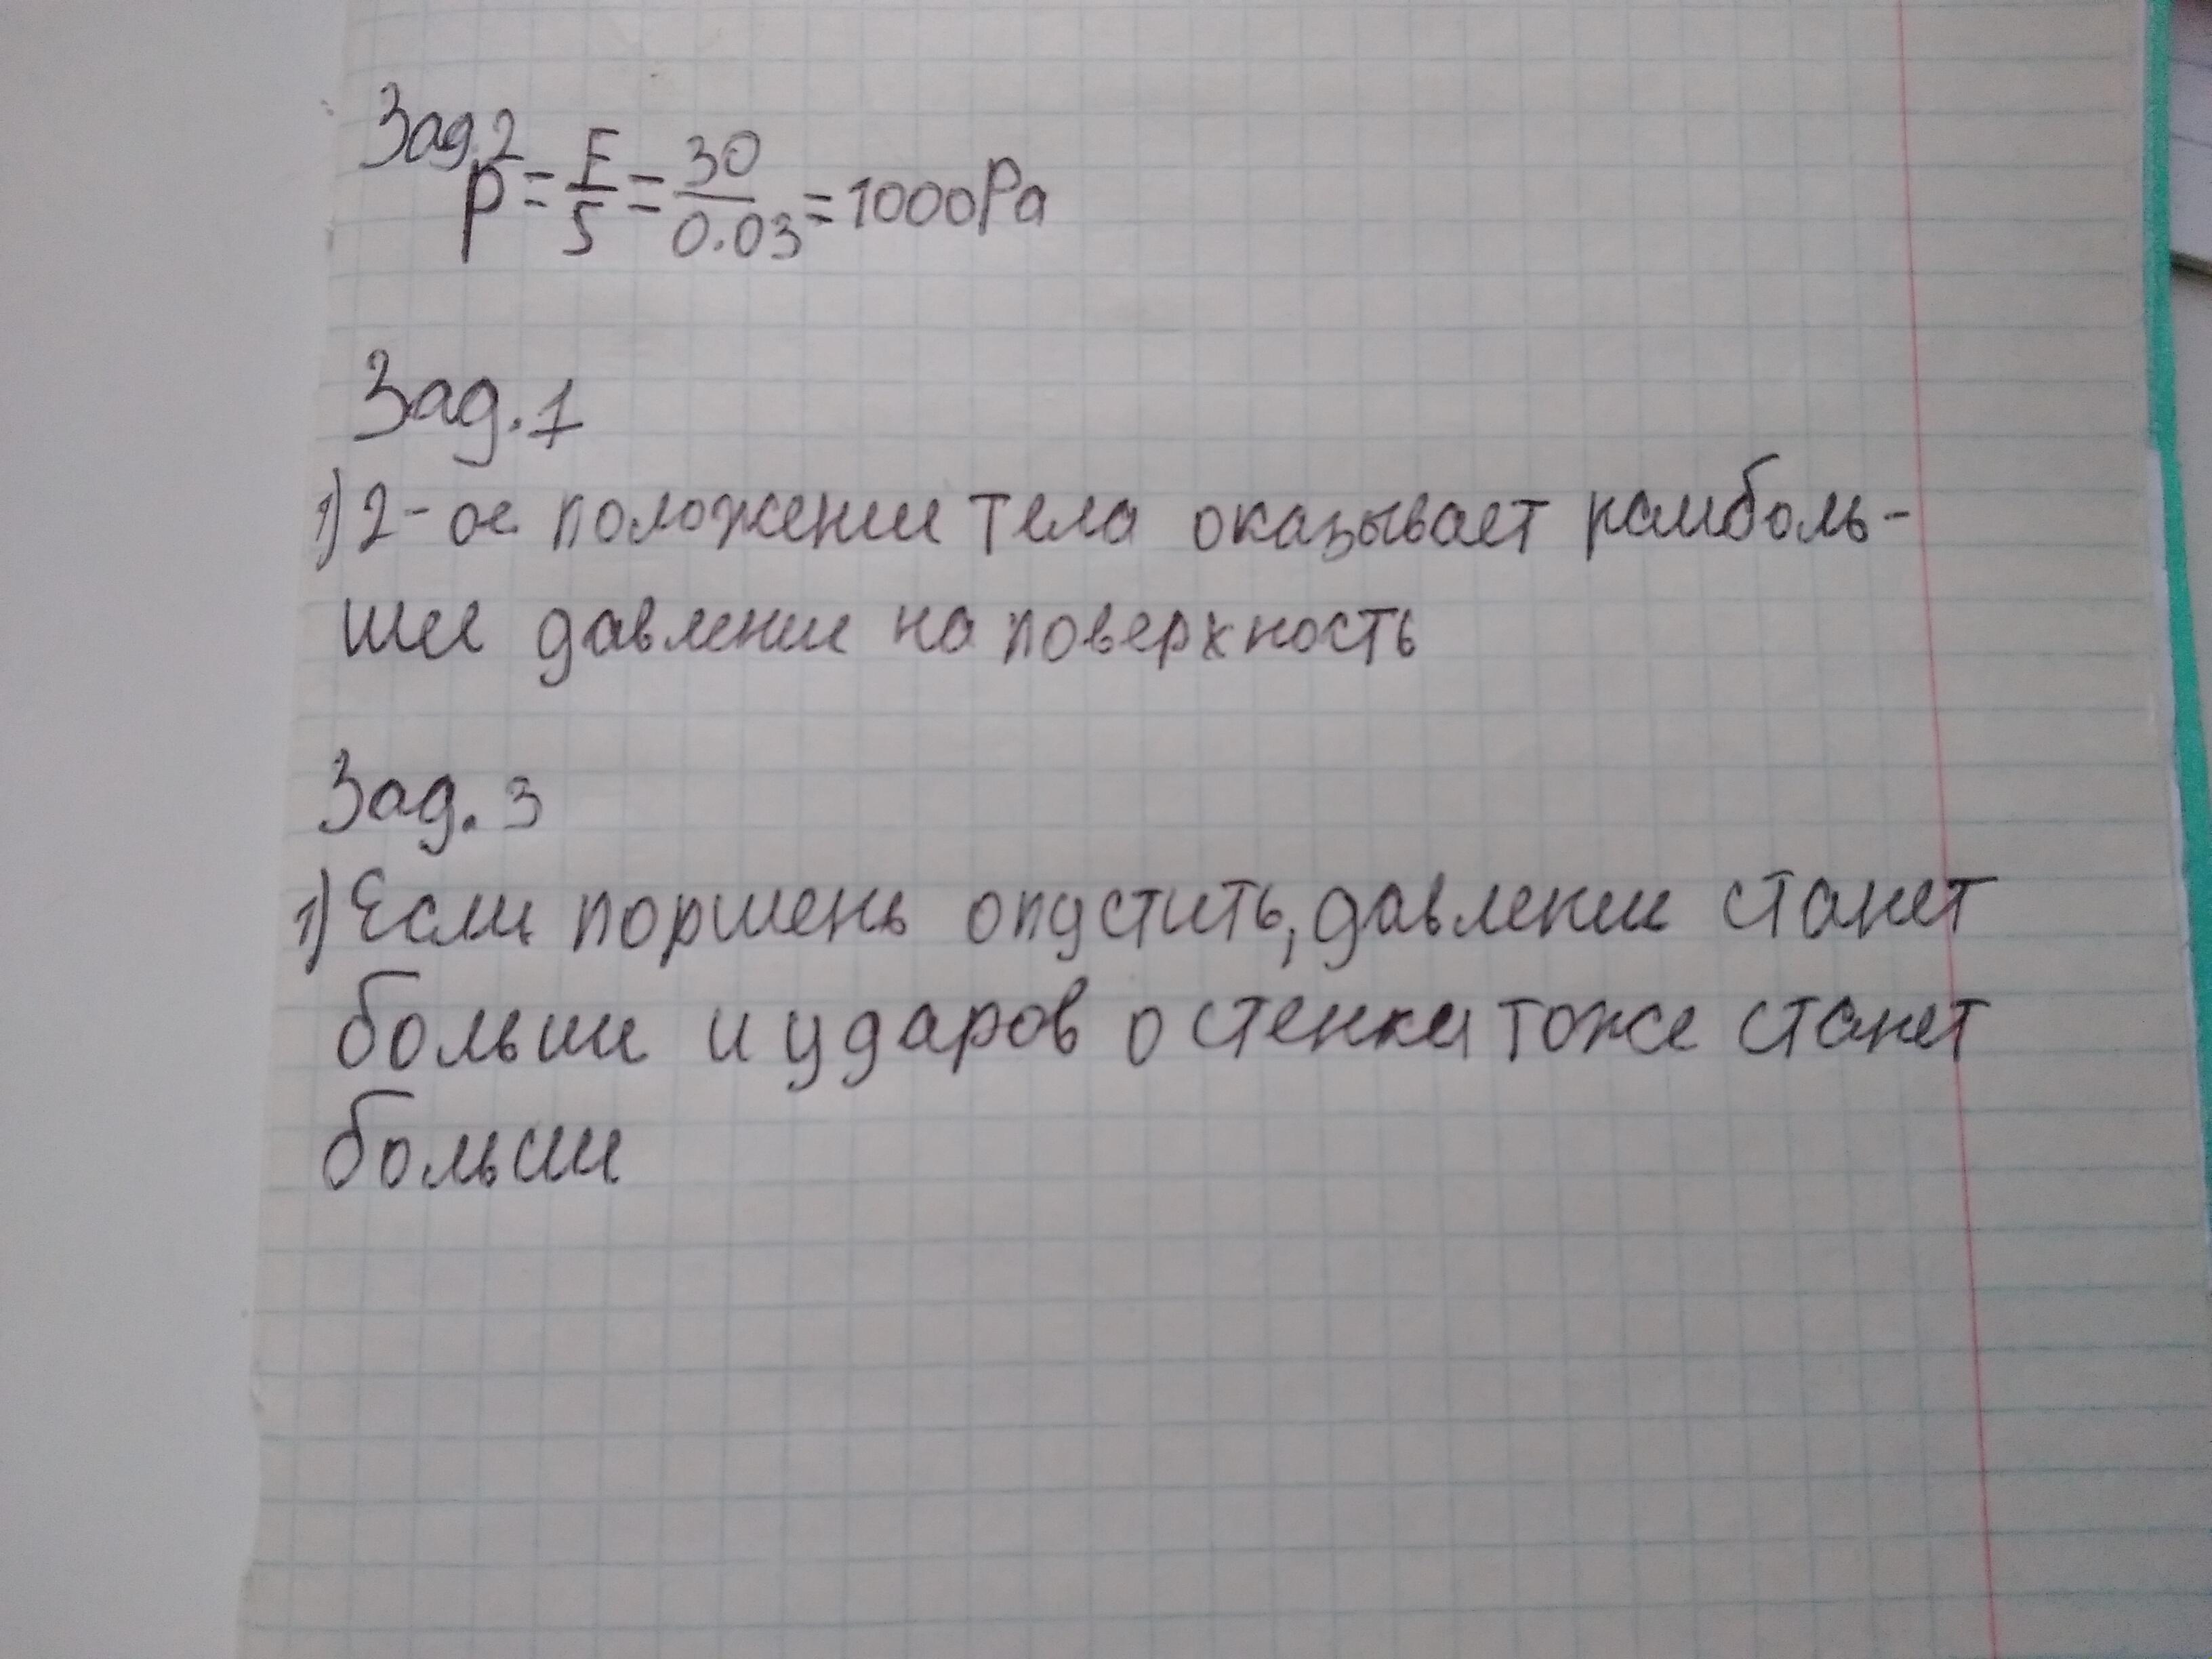 Зад.2
P = F/S = 30/0.03 = 1000Pa
Зад.1
1) 2-ое положение тела оказывает наиболь-
шее давление на поверхность
Зад. 3
1) Если поршень опустить, давление станет
больше и ударов о стенки тоже станет
больше